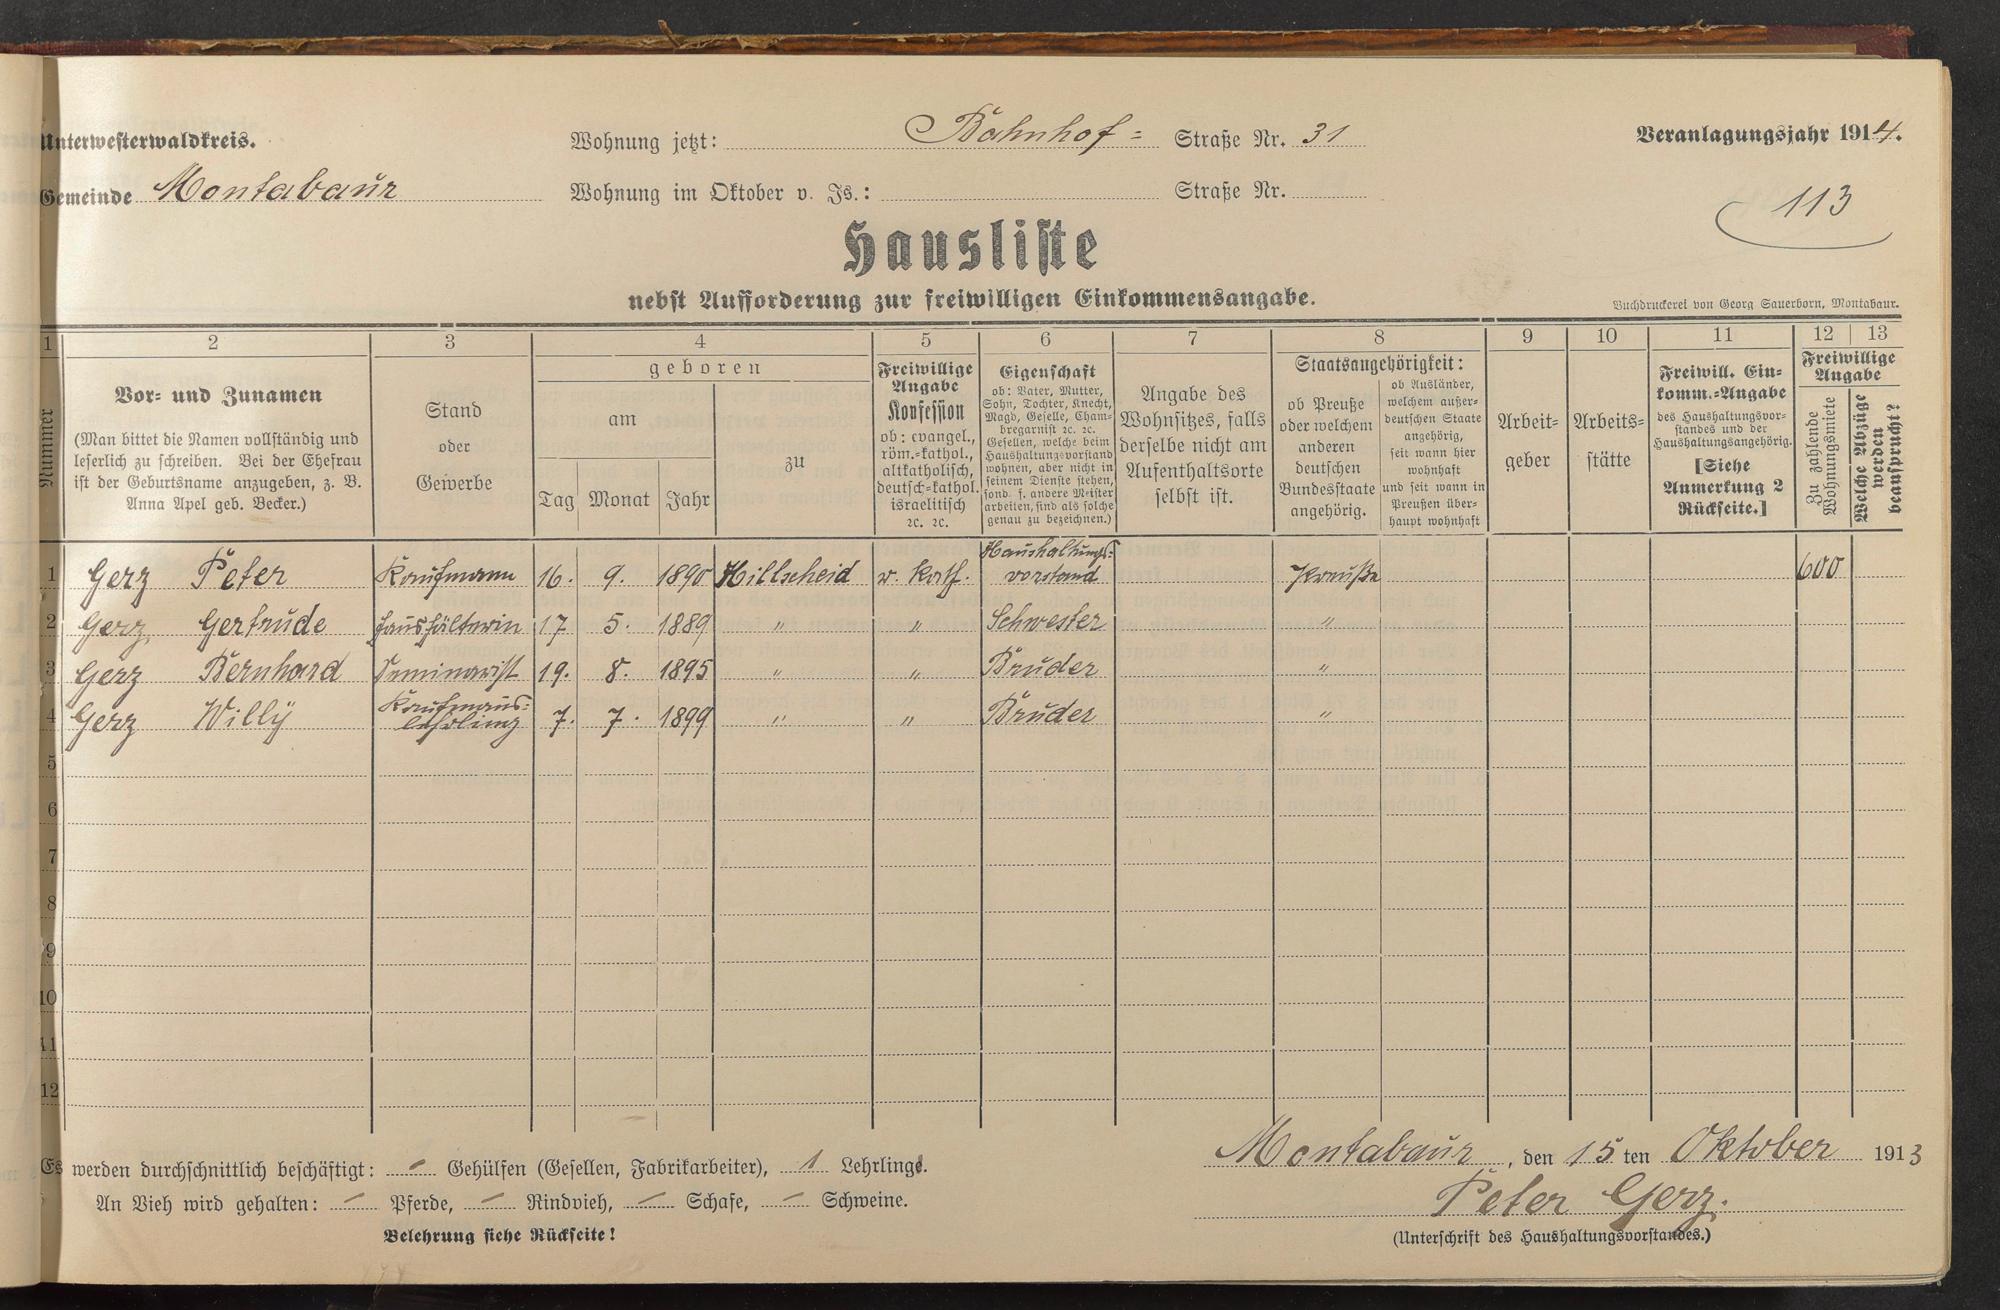 Unterwesterwaldkreis.
Wohnung jetzt: Bahnhof= Straße Nr. 31
Veranlagungsjahr 1914.
Gemeinde Montabaur
Wohnung im Oktober v. Js.: Straße Nr.
113
Hausliste
nebst Aufforderung zur freiwilligen Einkommensangabe.
Buchdruckerei von Georg Sauerborn, Montabaur.
1 2 3 4 5 6 7 8 9 10 11 12 13
Nummer
Vor- und Zunamen
(Man bittet die Namen vollständig und
leserlich zu schreiben. Bei der Ehefrau
ist der Geburtsname anzugeben, z. B.
Anna Apel geb. Becker.)
Stand
oder
Gewerbe
geboren
am
Tag Monat Jahr
zu
Freiwillige
Angabe
Konfession
ob: evangel.,
röm.-kathol.,
altkatholisch,
deutsch-kathol.
israelitisch
2c. 2c.
Eigenschaft
ob: Vater, Mutter,
Sohn, Tochter, Knecht,
Magd, Geselle, Cham-
bregarnist 2c. 2c.
Gesellen, welche beim
Haushaltungsvorstand
wohnen, aber nicht in
seinem Dienste stehen,
sond. f. andere Meister
arbeiten, sind als solche
genau zu bezeichnen.)
Angabe des
Wohnsitzes, falls
derselbe nicht am
Aufenthaltsorte
selbst ist.
Staatsangehörigkeit:
ob Preuße
oder welchem
anderen
deutschen
Bundesstaate
angehörig.
ob Ausländer,
welchem außer-
deutschen Staate
angehörig,
seit wann hier
wohnhaft
und seit wann in
Preußen über-
haupt wohnhaft
Arbeit-
geber
Arbeits-
stätte
Freiwill. Ein-
komm.-Angabe
des Haushaltungsvor-
standes und der
Haushaltungsangehörig.
[Siehe
Anmerkung 2
Rückseite.]
Freiwillige
Angabe
Zu zahlende
Wohnungsmiete
Welche Abzüge
werden
beansprucht?
1 Gerz Peter Kaufmann 16. 9. 1890 Hillscheid r. kath. Haushaltungs-
vorstand Preuße 600
2 Gerz, Gertrude Haushälterin 17 5. 1889 " " Schwester "
3 Gerz Bernhard Seminarist 19. 8. 1895 " " Bruder "
4 Gerz Willy Kaufmans-
lehrling 7. 7. 1899 " " Bruder "
5
6
7
8
9
10
11
12
Es werden durchschnittlich beschäftigt: – Gehülfen (Gesellen, Fabrikarbeiter), 1 Lehrlinge.
An Vieh wird gehalten: – Pferde, – Rindvieh, – Schafe, – Schweine.
Belehrung siehe Rückseite!
Montabaur, den 15 ten Oktober 1913
Peter Gerz.
(Unterschrift des Haushaltungsvorstandes.)